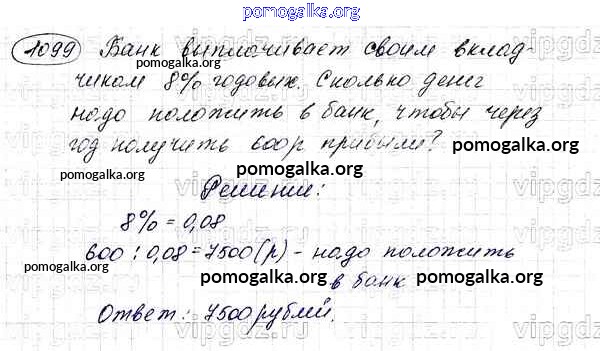 pomogalka.org
1099 Банк выплачивает своим вклад-
pomogalka.org
чикам 8% годовых. Сколько денег
pomogalka.org
надо положить в банк, чтобы через
год получить 600р прибыли? pomogalka.org
pomogalka.org
Решение:
pomogalka.org
8% = 0,08
pomogalka.org
600 : 0,08 = 7500 (р) - надо положить
pomogalka.org
pomogalka.org в банк pomogalka.org
Ответ: 7500 рублей.
vipgdz.ru